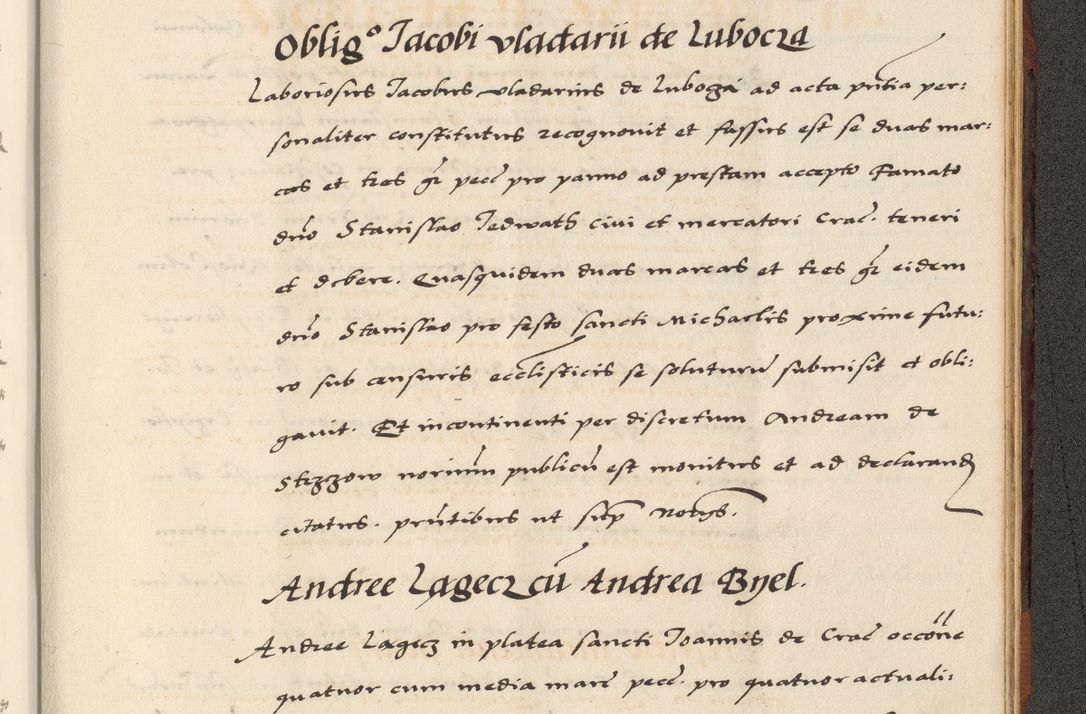 Oblig° Jacobi vladarii de Lubocza
Laboriosus Jacobus vladarius de Luboga ad acta pñtia per:
sonaliter constitutus recognovit et fassus est se duas mar:
cas et tres gr̃ pecc̃ pro panno ad prestam accepto Famato
dño Stanislao Jedwath civi et mercatori Crac̃. teneri
et debere. Quasquidem duas marcas et tres gr̃ eidem
dño Stanislao pro festo sancti Michaelis proxime futu:
ro sub censuris eccl̃isticis se soluturũ submisit et obli:
gavit. Et incontinenti per discretum Andream de
Strzzow norium̃ publicũ est monitus et ad declarand
citatus. prñtibus ut sup̃ notis.
Andree Lagecz cũ Andrea Byel.
Andree Lagecz in platea sancti Joannis de Crac̃ occõne
quatuor cum media marc̃ pecc̃. pro quatuor actuali: